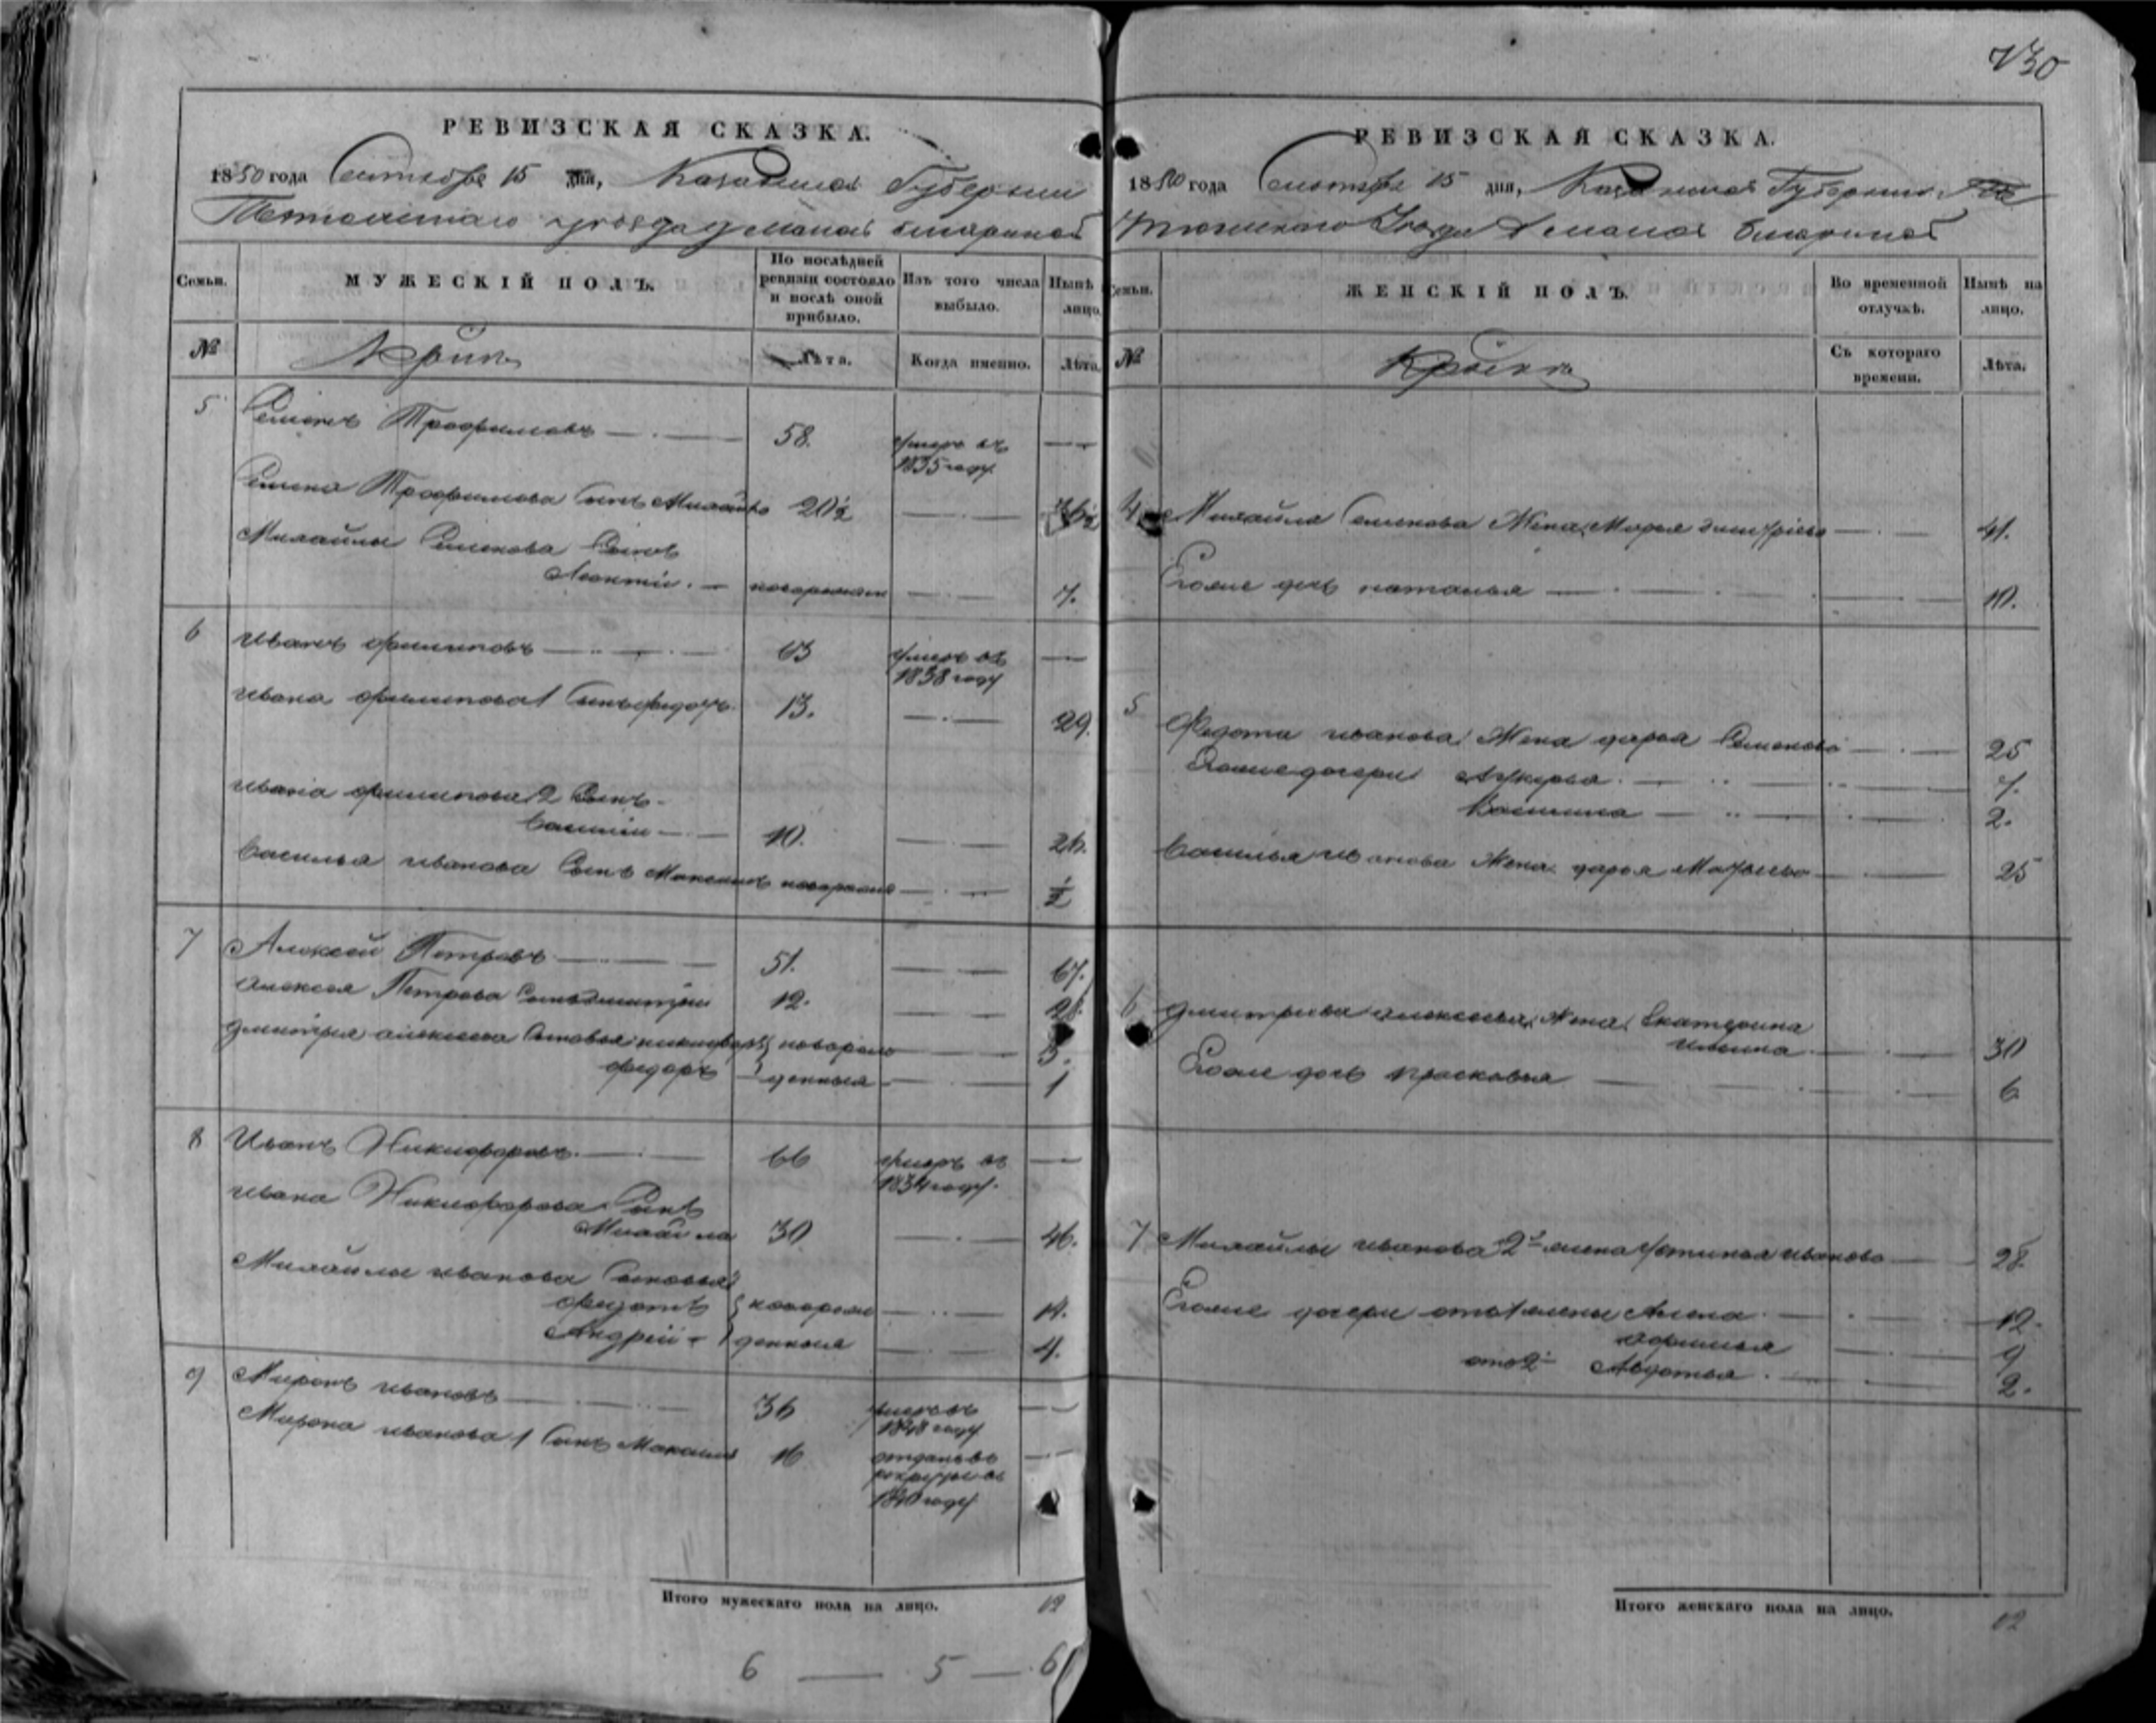 РЕВИЗСКАЯ СКАЗКА.
1850 года Сентября 15 дня, Казанской Губернии
Тетюшскаго уезда
Семьи.
МУЖЕСКІЙ ПОЛЪ.
По послѣдней ревизіи состояло и послѣ оной прибыло.
Изъ того числа выбыло.
Нынѣ лицо.
№
Лѣта.
Когда именно.
Лѣта.
5 Семенъ Трофимовъ 58. умеръ въ 1835 году
Семена Трофимова Сынъ Михайло 20½
Михайлы Семенова Сынъ
Леонтіи новорожден 7.
6 Иванъ филиповъ 63 умеръ въ 1838 году
Ивана филипова 1 Сынъ федотъ 13. 29.
Ивана филипова 2 Сынъ
Василіи 10. 26.
Василья Иванова Сынъ новорожд ½
7 Алексей Петровъ 51. 67.
Алексея Петрова Сынъ Дмитріи 12. 28.
Дмитрея алексеева Сыновья никифоръ новорож 5.
федоръ денныя 1
8 Иванъ Никифоровъ 66 умеръ въ 1834 году.
Ивана Никифорова Сынъ
Михайла 30 46.
Михайлы Иванова Сыновья
федотъ новорож
Андреи денныя 4.
9 Миронъ Ивановъ 36 умеръ въ 1848 году
Мирона Иванова 1 Сынъ 16 отданъ въ рекруты въ 1840 году
Итого мужескаго пола на лицо. 12
6 — 5 — 6
730
РЕВИЗСКАЯ СКАЗКА.
1850 года Сентября 15 дня, Казанской Губерніи Те
тюшскаго Уезда
Семьи.
ЖЕНСКІЙ ПОЛЪ.
Во временной отлучкѣ.
Нынѣ на лицо.
№
Съ котораго времени.
Лѣта.
4 Михайла Семенова Жена Марья Дмитріева 41.
Егоже дочь наталья 10.
5 Федота иванова Жена дарья Семенова 25
Егоже дочери 7.
2.
Василья Иванова Жена дарья Матвеева 25
6 Дмитріева алексеева Жена Екатерина
Ильина 30
Егоже дочь прасковья 6
7 Михайлы иванова 2й жена устинья иванова 28.
Егоже дочери от 1 жены Алена 12.
афимья 9
от 2й Авдотья. 2.
Итого женскаго пола на лицо. 12